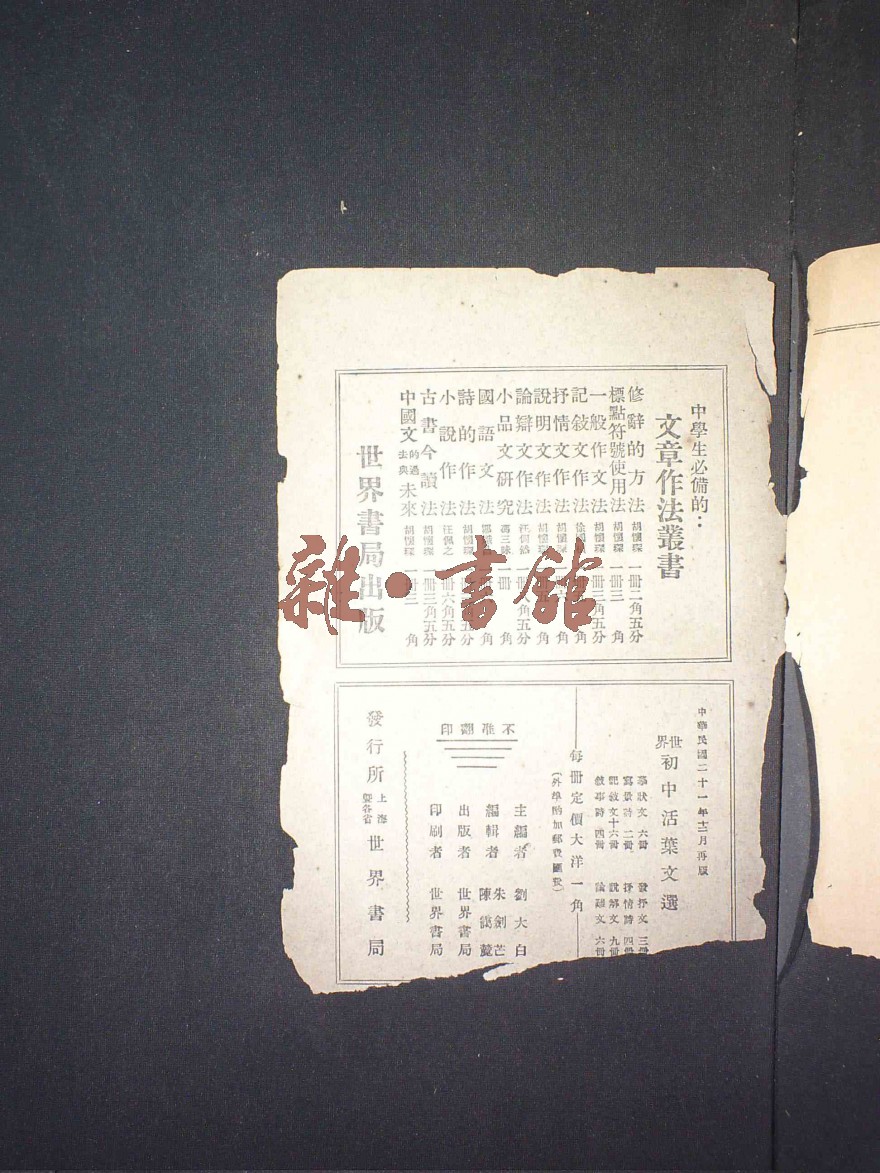 中學生必備的：
文章作法叢書
修辭的方法 胡懷琛 一冊二角五分
標點符號使用法 胡懷琛 一冊三角
一般作文法 胡懷琛 一冊三角五分
記敍文作法 角
抒情文作法 五分
說明文作法 胡懷琛 角
論辯文作法 角五分
小品文研究 馮三昧 一冊 角
國語文法 角
詩的作法 胡懷琛 五分
小說作法 汪佩之 一冊六角五分
古書今讀法 胡懷琛 一冊三角五分
中國文的過去與未來 胡懷琛 一冊三角
世界書局出版
雜·書館
中華民國二十一年十二月再版
世界初中活葉文選
摹狀文 六冊 發抒文 三冊
寫景詩 二冊 抒情詩 四冊
記敘文十六冊 說解文 九冊
敘事詩 四冊 論難文 六冊
每冊定價大洋一角
(外埠酌加郵費匯費)
主編者 劉大白
編輯者 朱劍芒 陳靄麓
出版者 世界書局
印刷者 世界書局
不准翻印
發行所 上海暨各省 世界書局